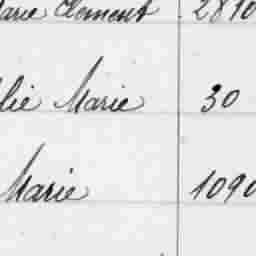 Marie Clement 2810
lie Marie 30
Marie 1090